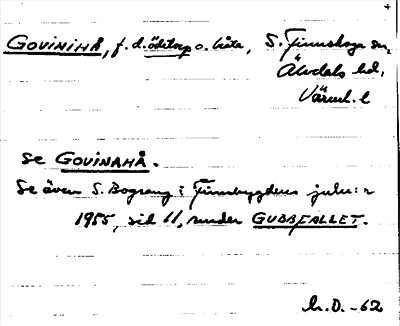 GOVINIHÅ, f. d. ödetorp o. våta, S. Finnskoga sn,
Älvdals hd,
Värml. l
se GOVINAHÅ.
Se även S. Bograng i Finnbygdens julnr
1955, sid 11, under GUBBFALLET.
h. O. -62